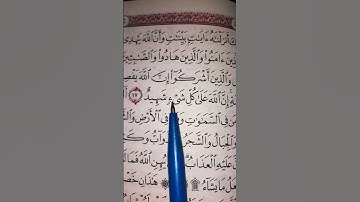 أَنزَلْنَٰهُ ءَايَٰتٍۭ بَيِّنَٰتٍ وَأَنَّ ٱللَّهَ يَهْدِى
ءَامَنُوا۟ وَٱلَّذِينَ هَادُوا۟ وَٱلصَّٰبِـِٔينَ
وَٱلَّذِينَ أَشْرَكُوٓا۟ إِنَّ ٱللَّهَ يَفْصِلُ
إِنَّ ٱللَّهَ عَلَىٰ كُلِّ شَىْءٍ شَهِيدٌ ١٧
مَن فِى ٱلسَّمَٰوَٰتِ وَمَن فِى ٱلْأَرْضِ وَٱلشَّ
وَٱلْجِبَالُ وَٱلشَّجَرُ وَٱلدَّوَآبُّ وَكَ
عَلَيْهِ ٱلْعَذَابُ ۗ وَمَن يُهِنِ ٱللَّهُ فَمَا
مَا يَشَآءُ ۩ ١٨ هَٰذَانِ خَصْ